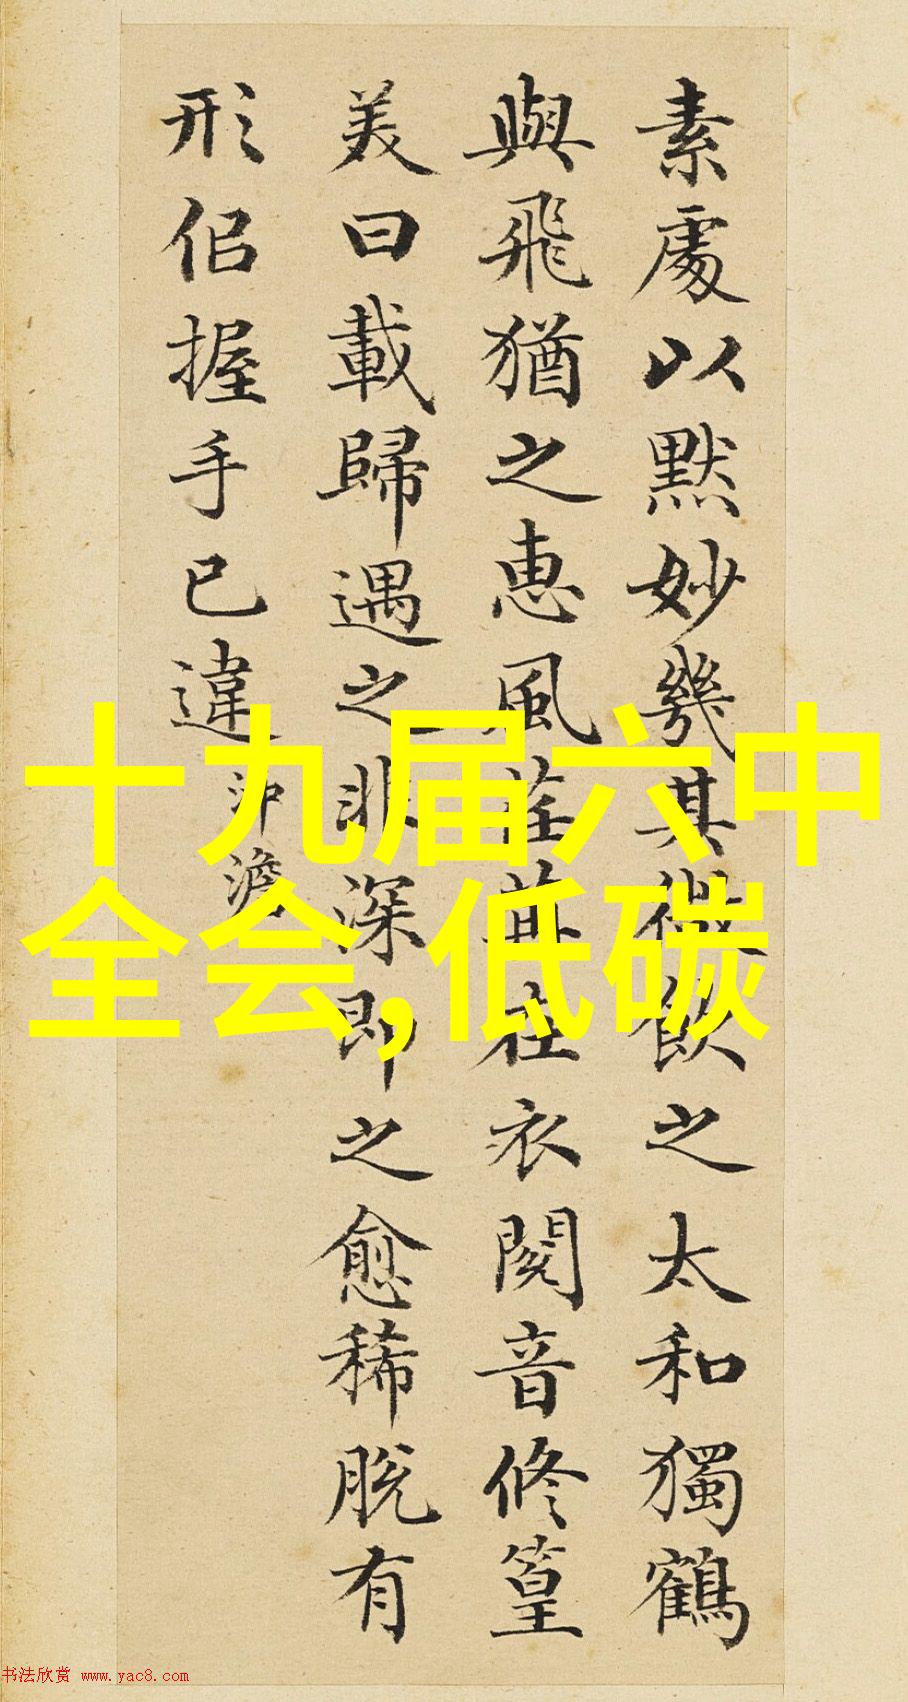 素處以默妙幾其微飲之太和獨鶴
與飛猶之惠風荏苒在衣閱音修篁
美曰載歸遇之非深即之愈稀脫有
形佀握手已違
沖澹
十九届六中
全会,低碳
书法欣赏 www.yac8.com